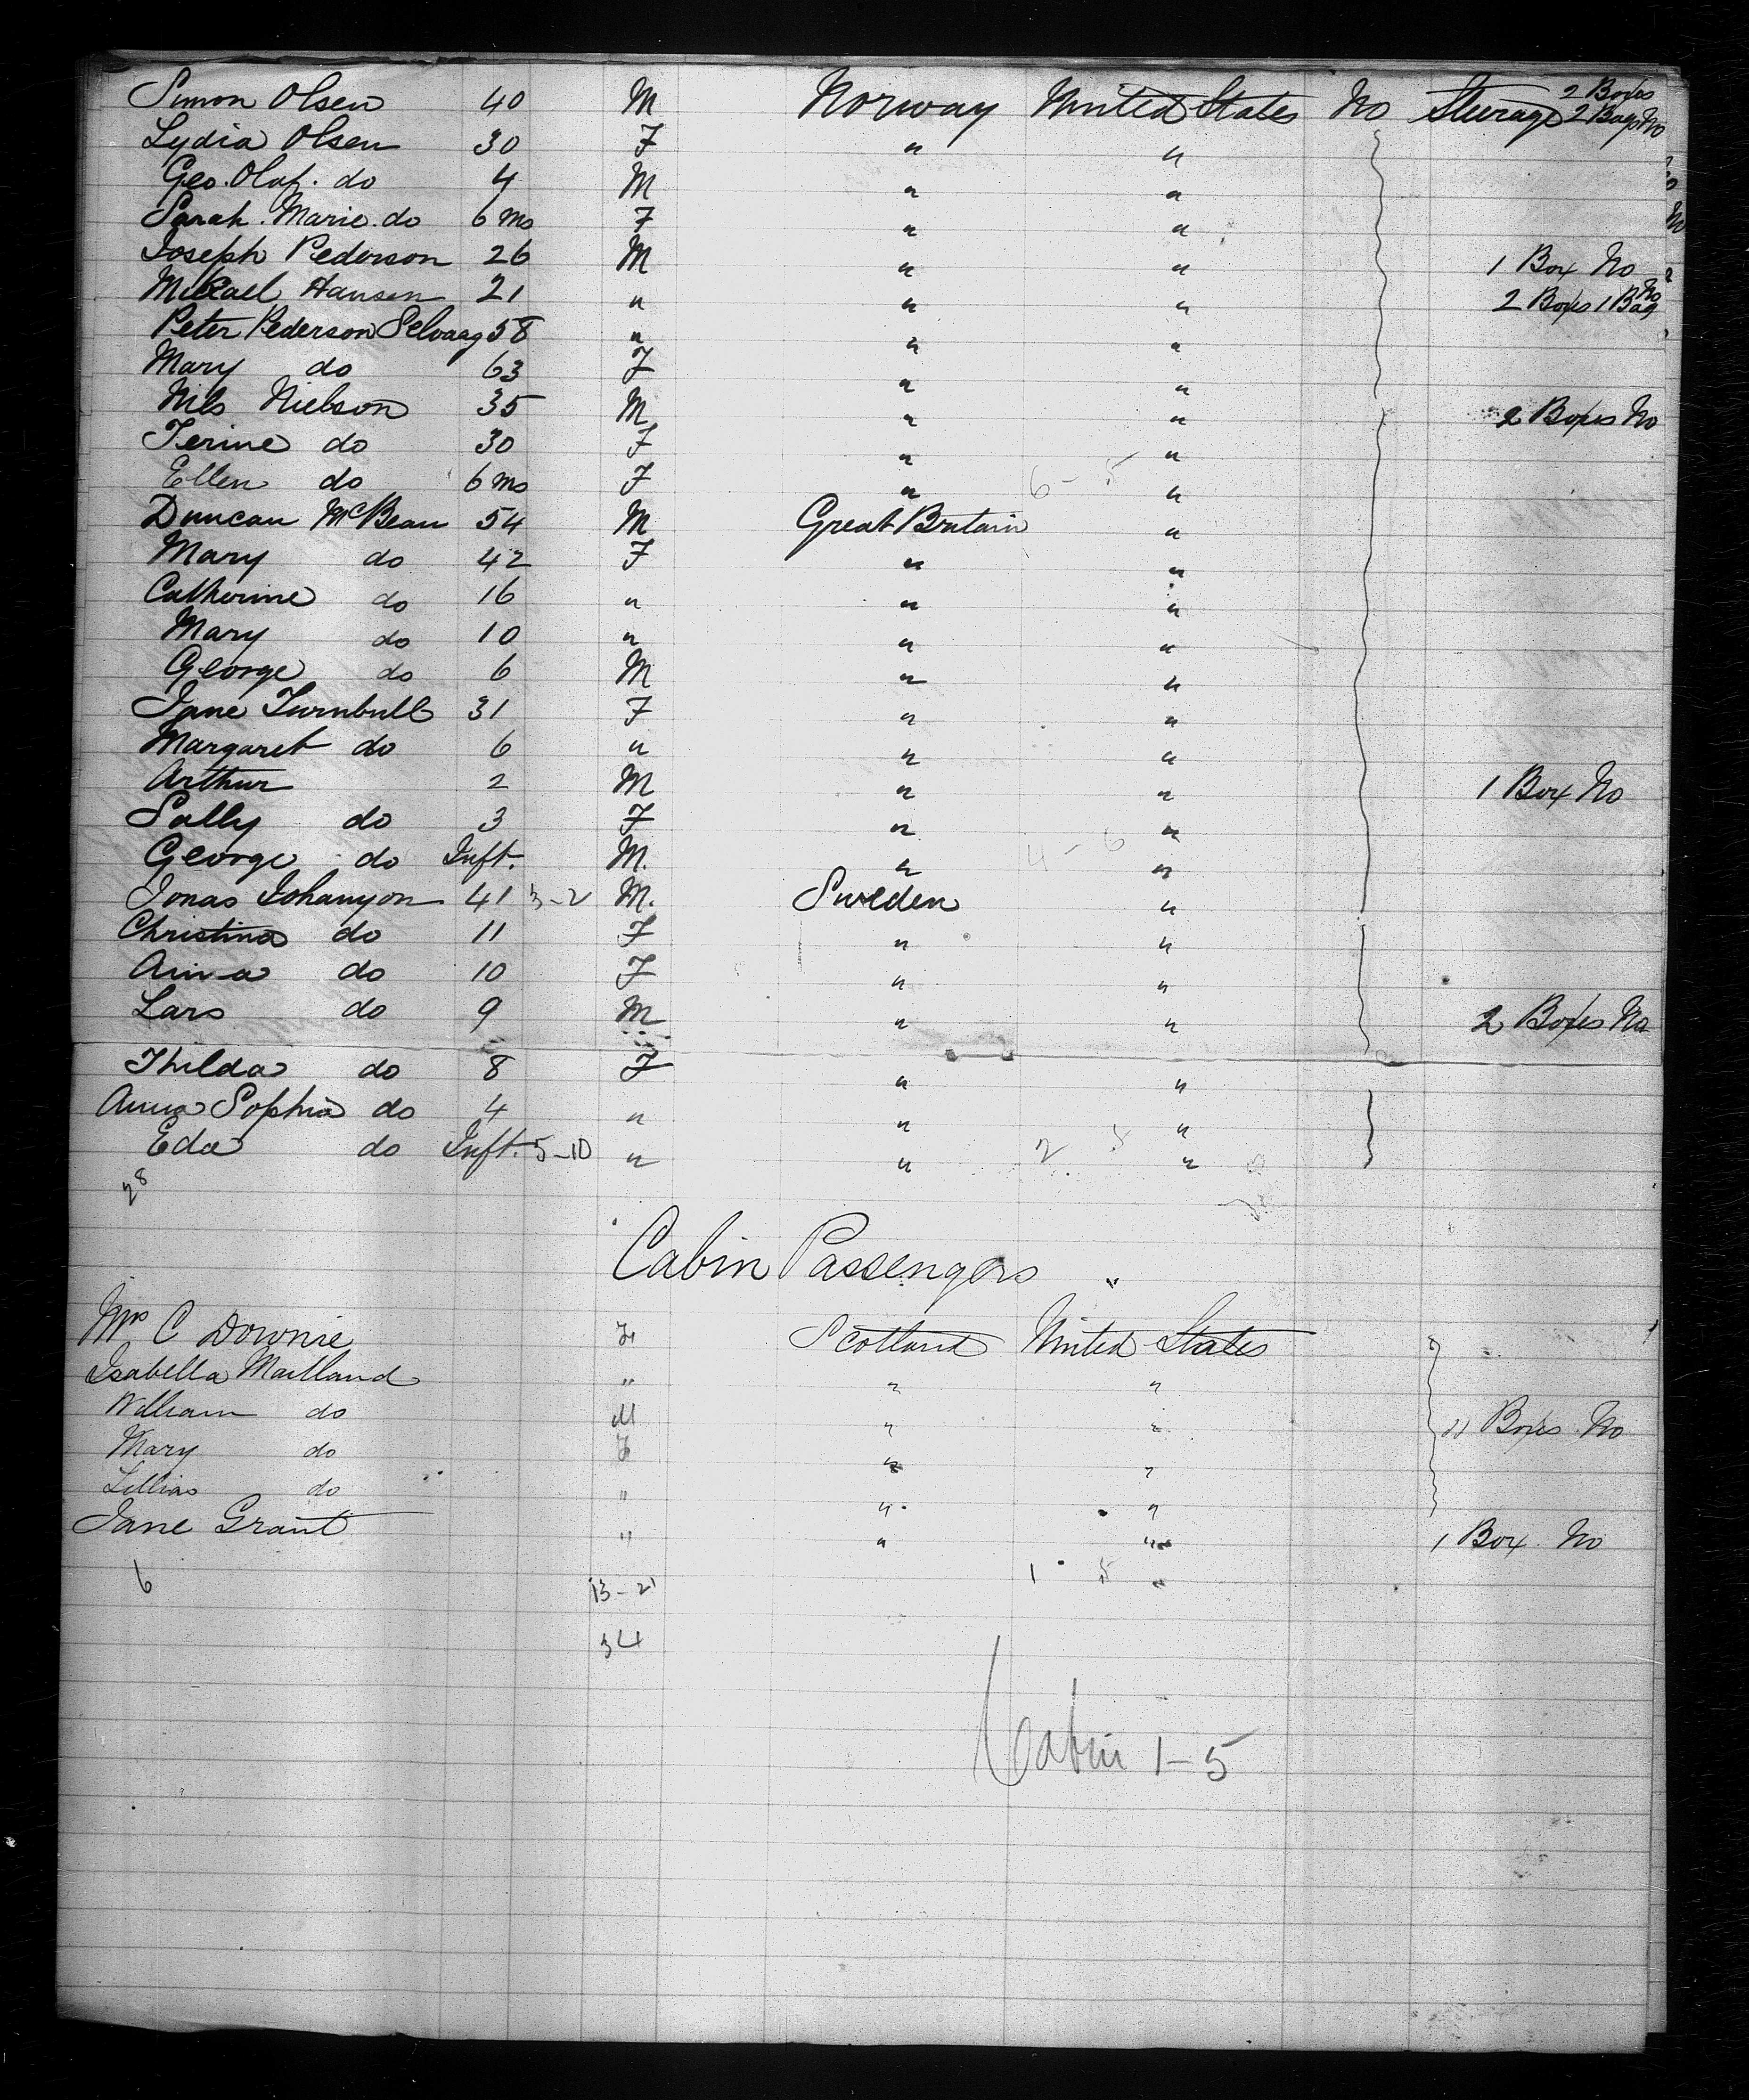 Simon Olsen 40 M Norway United States No Steerage 2 Boxes 2 Bags No
Lydia Olsen 30 F " "
Geo. Olaf. do 4 M " "
Sarah. Marie. do 6 mo F " "
Joseph Pederson 26 M " " 1 Box No
Mikael Hansen 21 " " " 2 Boxes 1 Bag No
Peter Pederson Selvaag 58 " " "
Mary do 63 F " "
Nils Nielson 35 M " " 2 Boxes No
Terine do 30 F " "
Ellen do 6 mo F " 6 - 5 "
Duncan McBean 54 M Great Britain "
Mary do 42 F " "
Catherine do 16 " " "
Mary do 10 " " "
George do 6 M " "
Jane Turnbull 31 F " "
Margaret do 6 " " "
Arthur 2 M " " 1 Box No
Sally do 3 F " "
George do Inft. M. " 4 - 6 "
Jonas Johanyon 41 3-2 M. Sweden "
Christina do 11 F " "
Anna do 10 F " "
Lars do 9 M " " 2 Boxes No
Thilda do 8 F " "
Anna Sophia do 4 " " "
Eda do Inft. 5-10 " " 2 5 "
28
Cabin Passengers "
Mrs C Downie F Scotland United States
Isabella Maitland " " "
William do M " " 11 Boxes No
Mary do F " "
Lillias do " " "
Jane Grant " " " 1 Box No
6 13-21 1 5 "
34
Cabin 1-5